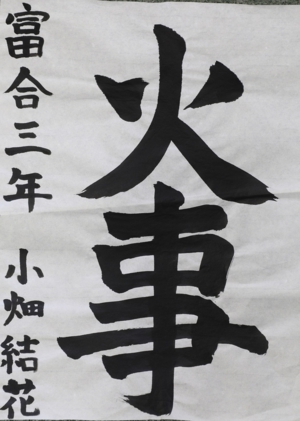 火事
富合三年 小畑結花